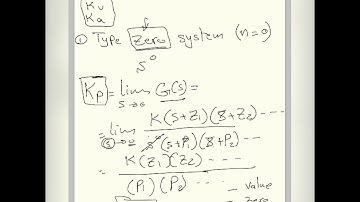 Kv
Ka
① Type Zero system (n=0)
S⁰
Kp = lim S→0 G(s) =
= lim S→0 K(S+Z1)(S+Z2) ---- / S⁰(S+P1)(S+P2)
= K(Z1)(Z2) --- / (P1)(P2) ---
_ value